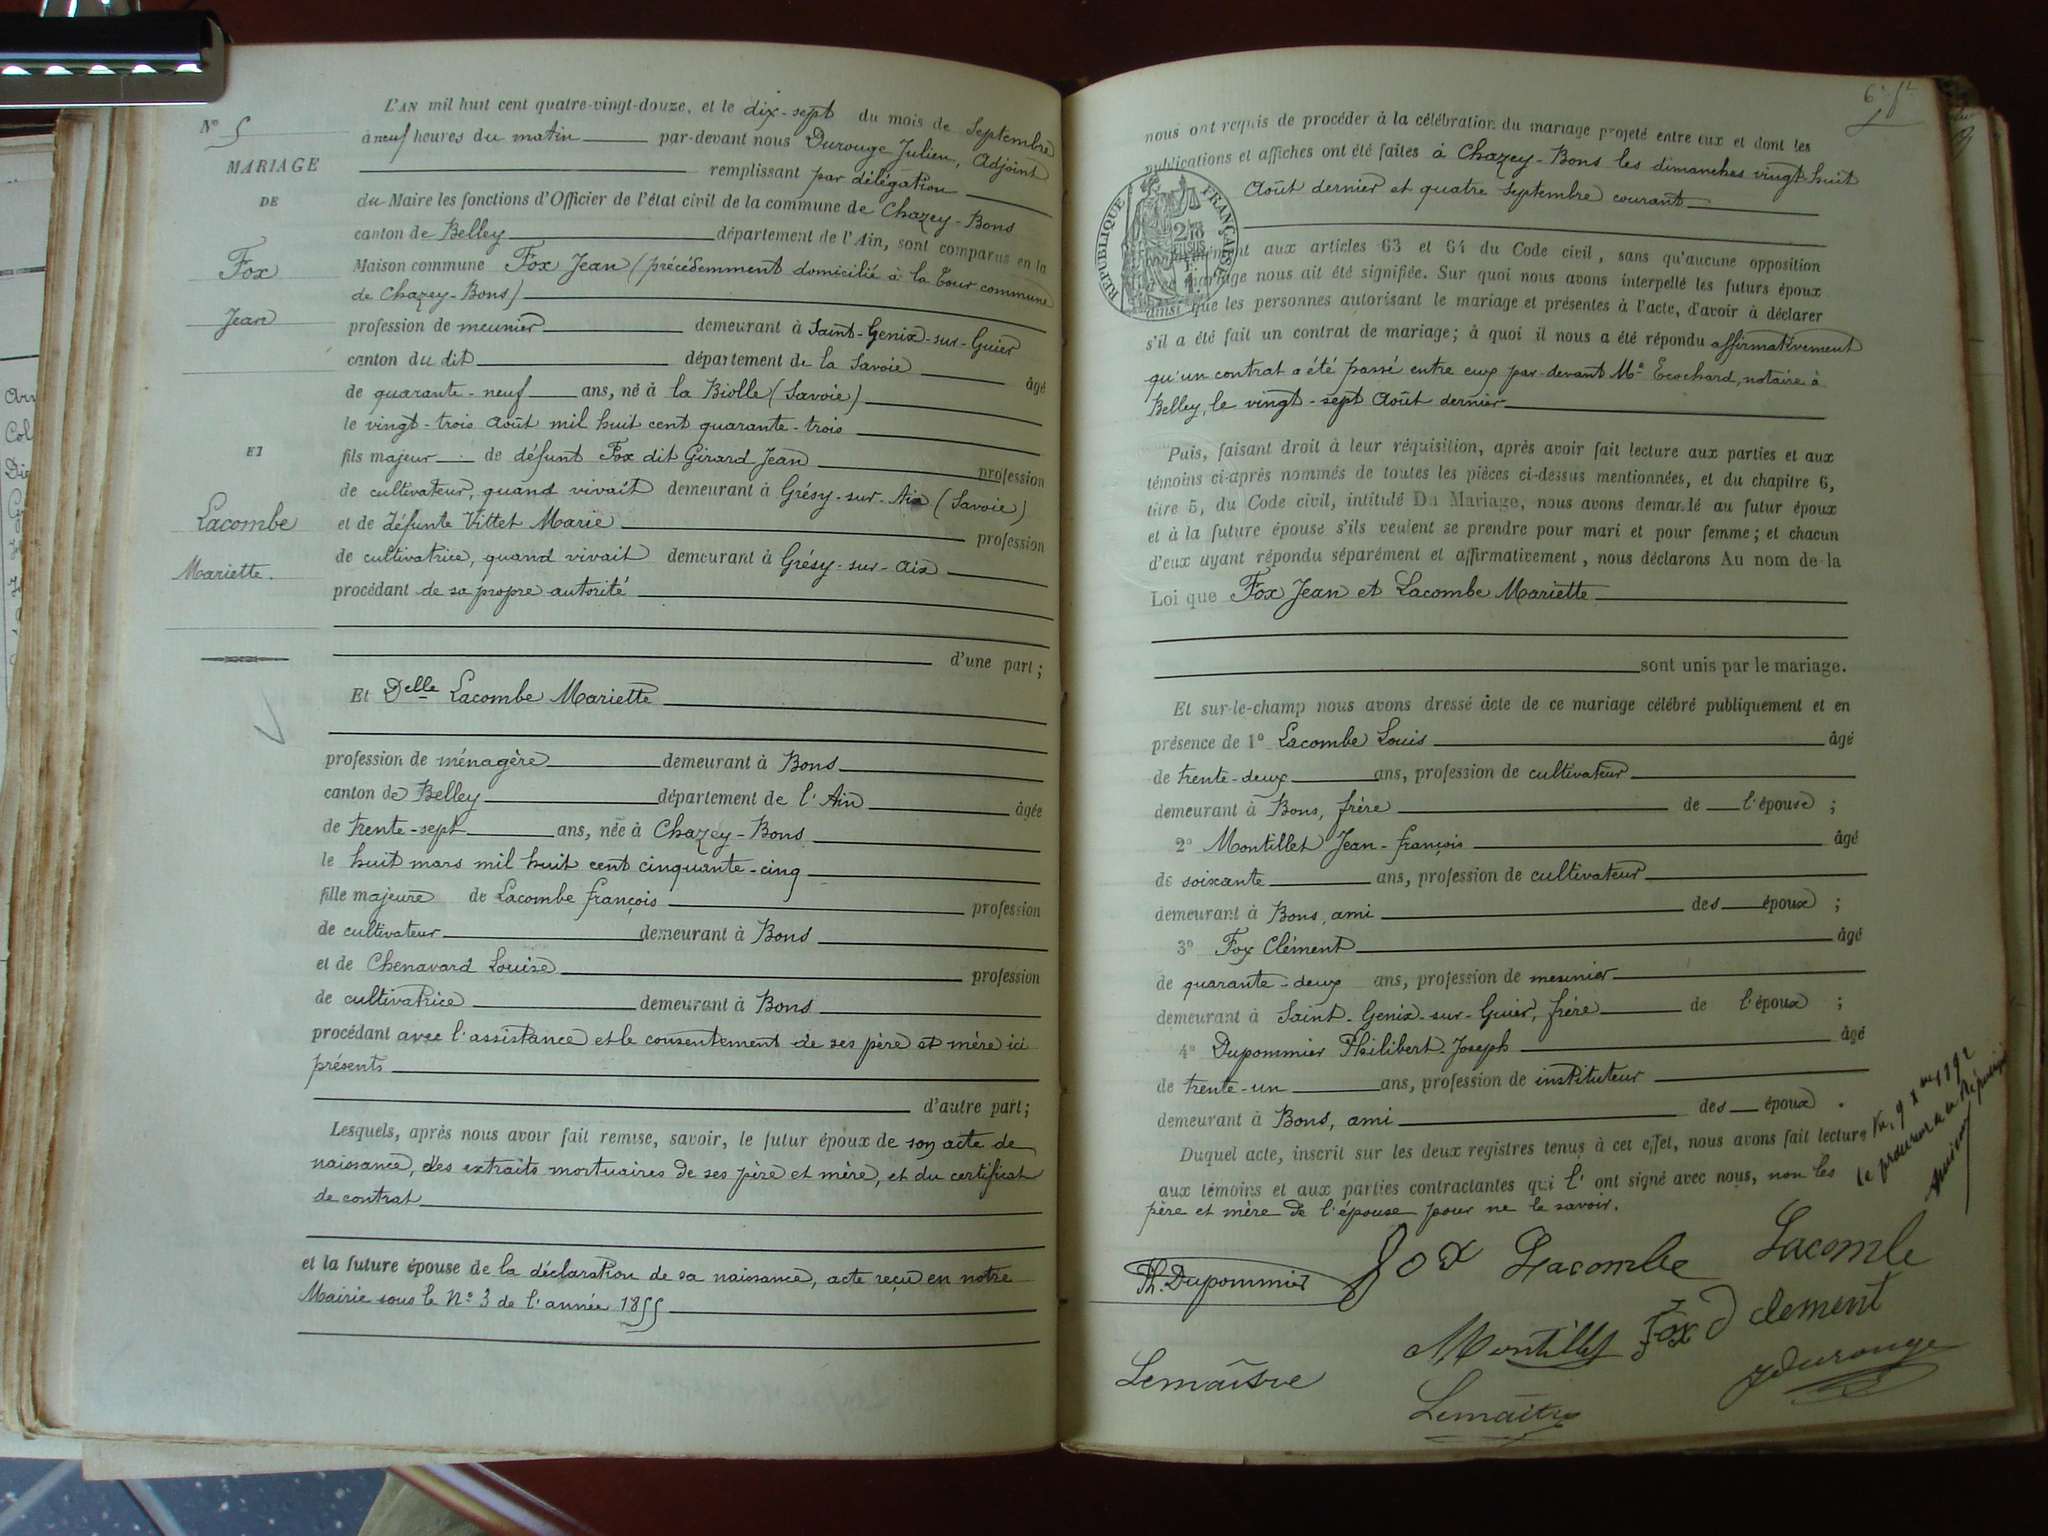 N° 5
MARIAGE
DE
Fox
Jean
ET
Lacombe
Mariette.
L'AN mil huit cent quatre-vingt-douze, et le dix-sept du mois de Septembre
à neuf heures du matin par-devant nous Durouge Julien, Adjoint
remplissant par délégation
du Maire les fonctions d'Officier de l'état civil de la commune de Chazey-Bons
canton de Belley département de l'Ain, sont comparus en la
Maison commune Fox Jean (précédemment domicilié à la Cour commune
de Chazey-Bons)
profession de meunier demeurant à Saint-Genix-sur-Guier
canton du dit département de la Savoie âgé
de quarante-neuf ans, né à la Biolle (Savoie)
le vingt-trois Août mil huit cent quarante-trois
fils majeur de défunt Fox dit Girard Jean profession
de cultivateur, quand vivait demeurant à Grésy-sur-Aix (Savoie)
et de défunte Vittet Marie profession
de cultivatrice, quand vivait demeurant à Grésy-sur-Aix
procédant de sa propre autorité
d'une part;
Et Delle Lacombe Mariette
profession de ménagère demeurant à Bons
canton de Belley département de l'Ain âgée
de trente-sept ans, née à Chazey-Bons
le huit mars mil huit cent cinquante-cinq
fille majeure de Lacombe François profession
de cultivateur demeurant à Bons
et de Chenavard Louise profession
de cultivatrice demeurant à Bons
procédant avec l'assistance et le consentement de ses père et mère ici
présents
d'autre part;
Lesquels, après nous avoir fait remise, savoir, le futur époux de son acte de
naissance, des extraits mortuaires de ses père et mère, et du certificat
de contrat
et la future épouse de la déclaration de sa naissance, acte reçu en notre
Mairie sous le N° 3 de l'année 1855
nous ont requis de procéder à la célébration du mariage projeté entre eux et dont les
publications et affiches ont été faites à Chazey-Bons les dimanches vingt-huit
Août dernier et quatre Septembre courant
RÉPUBLIQUE FRANÇAISE
aux articles 63 et 64 du Code civil, sans qu'aucune opposition
mariage nous ait été signifiée. Sur quoi nous avons interpellé les futurs époux
ainsi que les personnes autorisant le mariage et présentes à l'acte, d'avoir à déclarer
s'il a été fait un contrat de mariage; à quoi il nous a été répondu affirmativement
qu'un contrat a été passé entre eux par-devant Me Ecochard, notaire à
Belley, le vingt-sept Août dernier
Puis, faisant droit à leur réquisition, après avoir fait lecture aux parties et aux
témoins ci-après nommés de toutes les pièces ci-dessus mentionnées, et du chapitre 6,
titre 5, du Code civil, intitulé Du Mariage, nous avons demandé au futur époux
et à la future épouse s'ils veulent se prendre pour mari et pour femme; et chacun
d'eux ayant répondu séparément et affirmativement, nous déclarons Au nom de la
Loi que Fox Jean et Lacombe Mariette
sont unis par le mariage.
Et sur-le-champ nous avons dressé acte de ce mariage célébré publiquement et en
présence de 1° Lacombe Louis âgé
de trente-deux ans, profession de cultivateur
demeurant à Bons, frère de l'épouse;
2° Montillet Jean-François âgé
de soixante ans, profession de cultivateur
demeurant à Bons, ami des époux;
3° Fox Clément âgé
de quarante-deux ans, profession de meunier
demeurant à Saint-Genix-sur-Guier, frère de l'époux;
4° Dupommier Philibert-Joseph âgé
de trente-un ans, profession de instituteur
demeurant à Bons, ami des époux.
Duquel acte, inscrit sur les deux registres tenus à cet effet, nous avons fait lecture
aux témoins et aux parties contractantes qui l'ont signé avec nous, non les
père et mère de l'épouse pour ne le savoir.
le procureur de la République
Ph. Dupommier Fox Lacombe Lacombe
Montillet Fox clement
Lemaître Lemaitre JDurouge